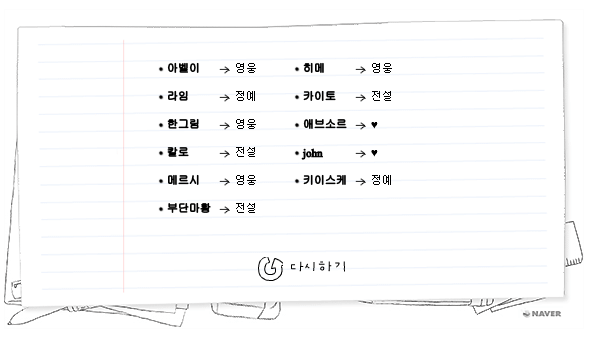 • 아벨이 → 영웅
• 라임 → 정예
• 한그림 → 영웅
• 칼로 → 전설
• 메르시 → 영웅
• 부단마황 → 전설
• 히메 → 영웅
• 카이토 → 전설
• 애브소르 → ♥
• john → ♥
• 키이스케 → 정예
다시하기
NAVER